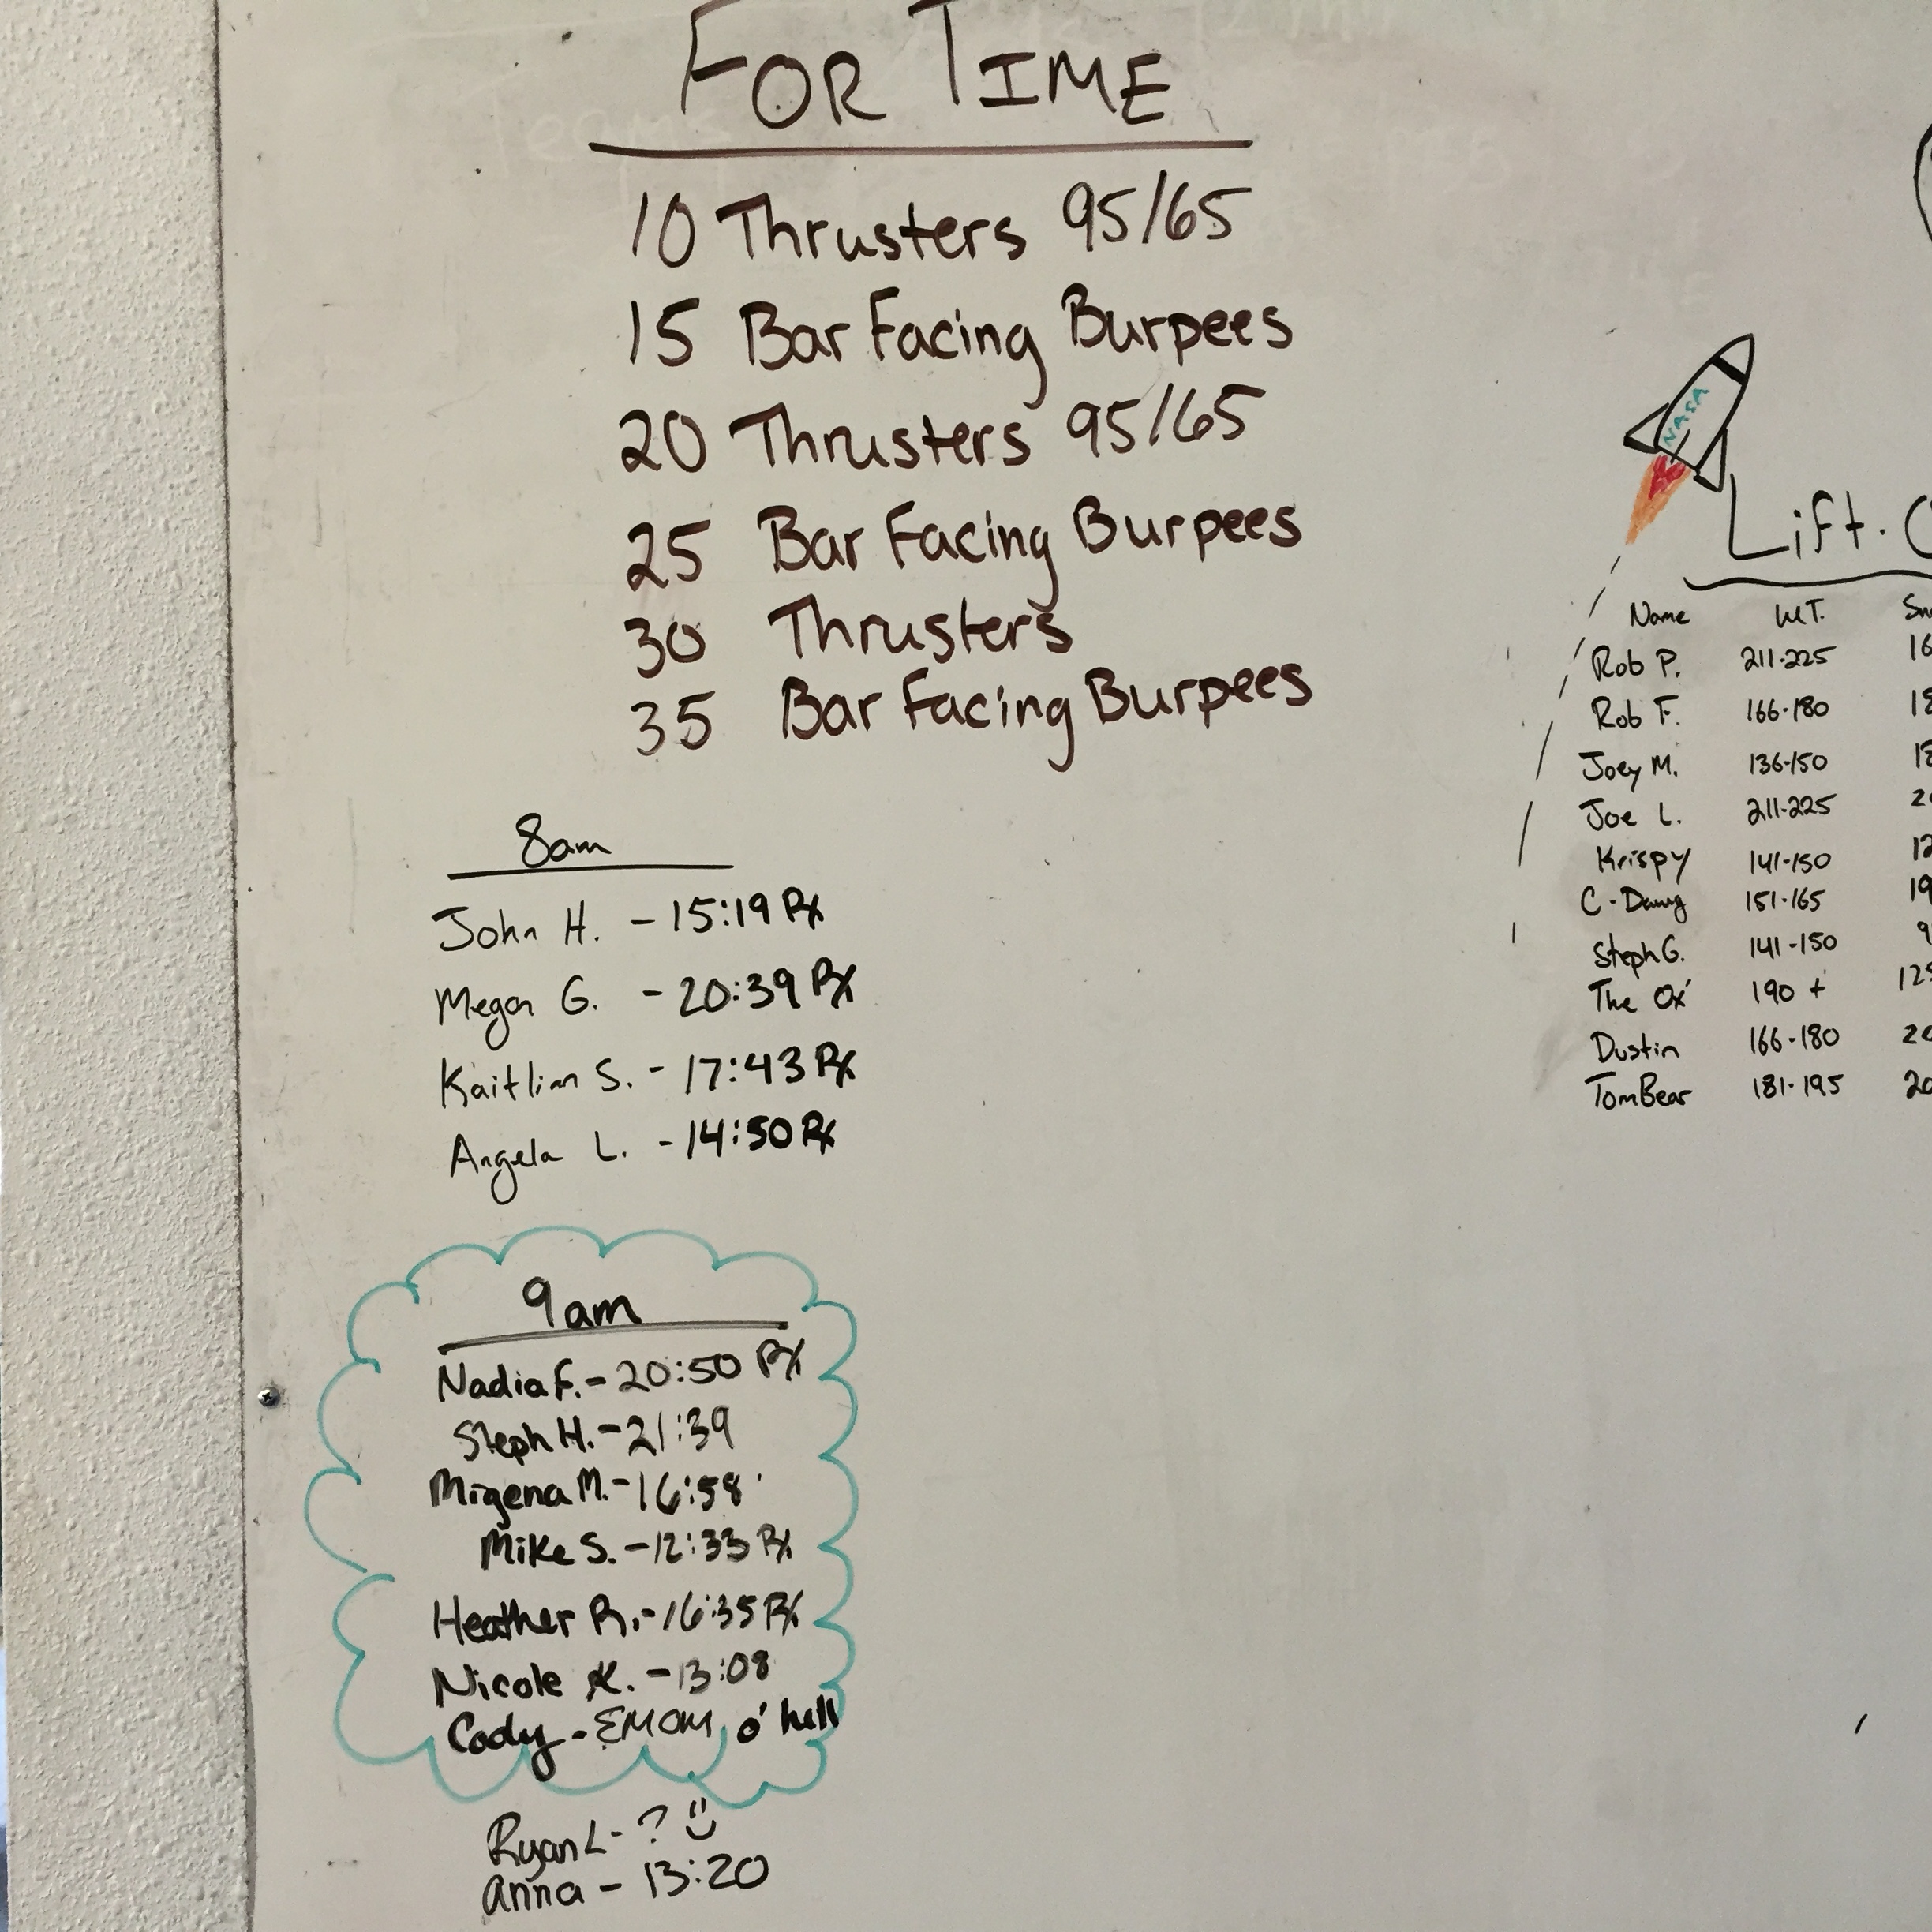 FOR TIME
10 Thrusters 95/65
15 Bar Facing Burpees
20 Thrusters 95/65
25 Bar Facing Burpees
30 Thrusters
35 Bar Facing Burpees
8am
John H. - 15:19 Rx
Megan G. - 20:39 Rx
Kaitlinn S. - 17:43 Rx
Angela L. - 14:50 Rx
9am
Nadia F. - 20:50 Rx
Steph H. - 21:39
Migena M. - 16:58
Mike S. - 12:33 Rx
Heather R. - 16:35 Rx
Nicole K. - 13:08
Cody - EMOM o' hell
Ryan L - ?
Anna - 13:20
NASA
Lift.
Name WT.
Rob P. 211-225
Rob F. 166-180
Joey M. 136-150
Joe L. 211-225
Krispy 141-150
C-Dawg 151-165
Steph G. 141-150
The Ox 190 +
Dustin 166-180
TomBear 181-195